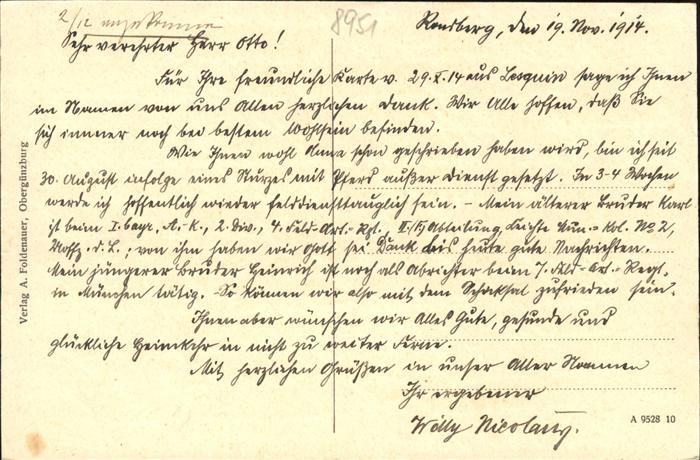 2/12 angekommen
8951
Ronsberg, den 19. Nov. 1914.
Sehr verehrter Herr Otto!
Für Ihre freundliche Karte v. 29. X. 14 aus Lesquin sage ich Ihnen
im Namen von uns Allen herzlichen Dank. Wir Alle hoffen, daß Sie
sich immer noch bei bestem Wohlsein befinden.
Wie Ihnen wohl Anna schon geschrieben haben wird, bin ich seit
30. August infolge eines Sturzes mit Pferd außer Dienst gesetzt. In 3-4 Wochen
werde ich hoffentlich wieder felddiensttauglich sein. - Mein älterer Bruder Karl
ist beim I. bayr. A.-K., 2. Div., 4. Feld-Art.-Rgt., II/15 Abteilung, Leichte Mun.-Kol. No 2,
Uoffz. d. L.; von ihm haben wir Gott sei Dank bis heute gute Nachrichten.
Mein jüngerer Bruder Heinrich ist noch als Abrichter beim 7. Feld-Art.-Regt.
in München tätig. So können wir also mit dem Schicksal zufrieden sein.
Ihnen aber wünschen wir Alles Gute, gesunde und
glückliche Heimkehr in nicht zu weiter Ferne.
Mit herzlichen Grüßen in unser Aller Namen
Ihr ergebener
Willy Nicolaus.
Verlag A. Foldenauer, Obergünzburg
A 9528 10